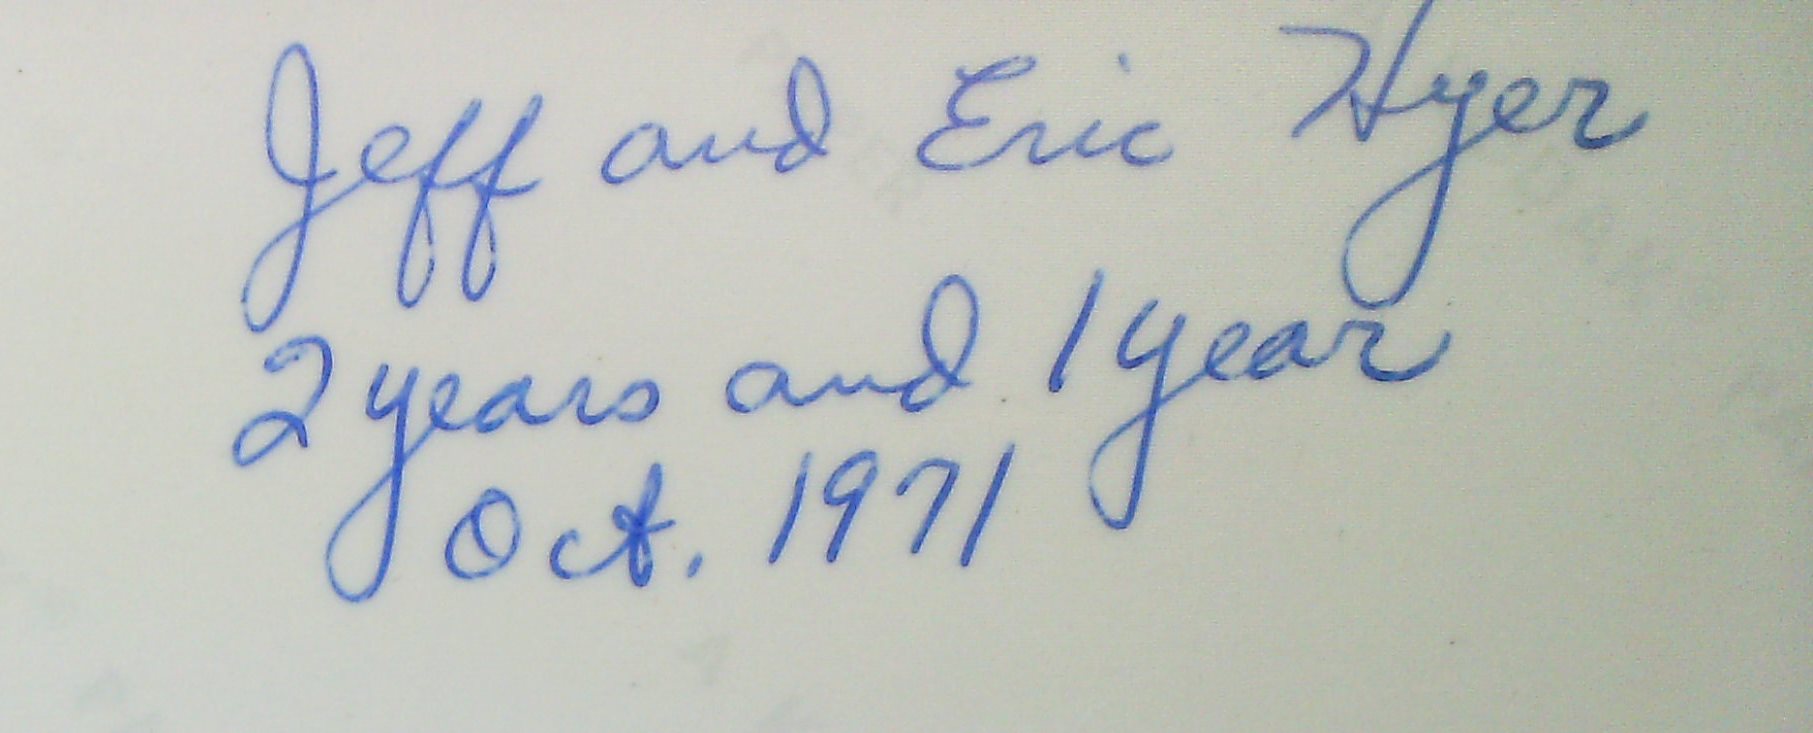 Jeff and Eric Hyer
2 years and 1 year
Oct. 1971